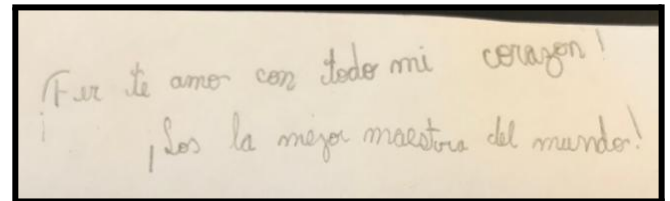 ¡Fer te amo con todo mi corazon!
¡Sos la mejor maestra del mundo!